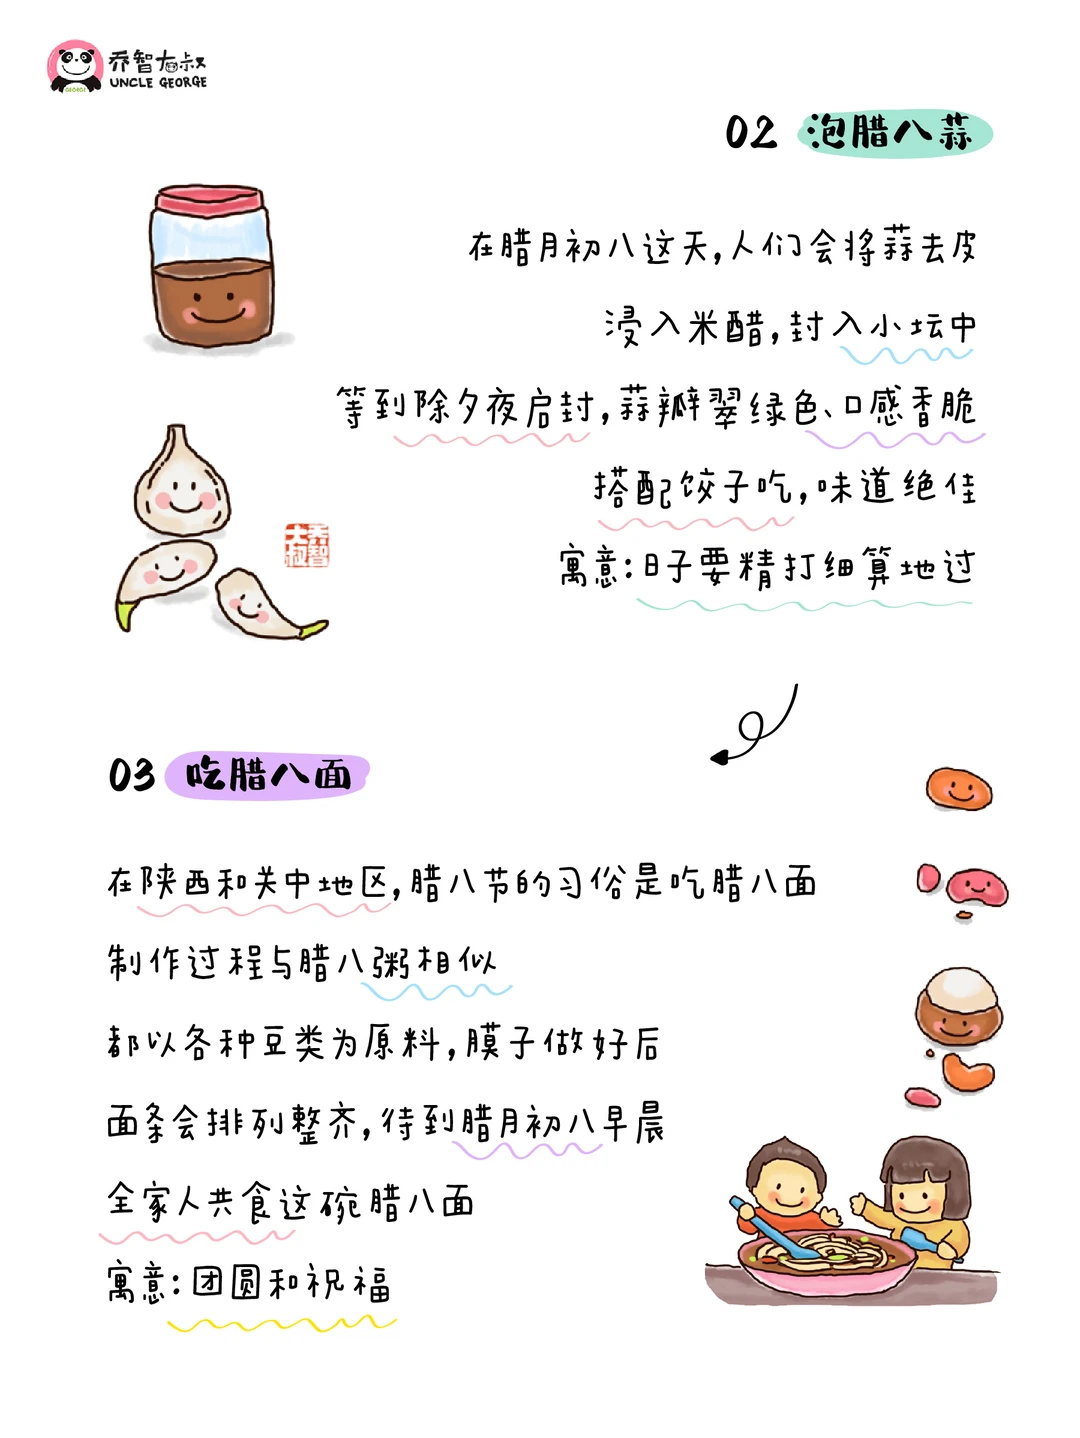 乔智大叔
UNCLE GEORGE
GEORGE
02 泡腊八蒜
在腊月初八这天,人们会将蒜去皮
浸入米醋,封入小坛中
等到除夕夜启封,蒜瓣翠绿色、口感香脆
搭配饺子吃,味道绝佳
寓意:日子要精打细算地过
乔智大叔
03 吃腊八面
在陕西和关中地区,腊八节的习俗是吃腊八面
制作过程与腊八粥相似
都以各种豆类为原料,膜子做好后
面条会排列整齐,待到腊月初八早晨
全家人共食这碗腊八面
寓意:团圆和祝福